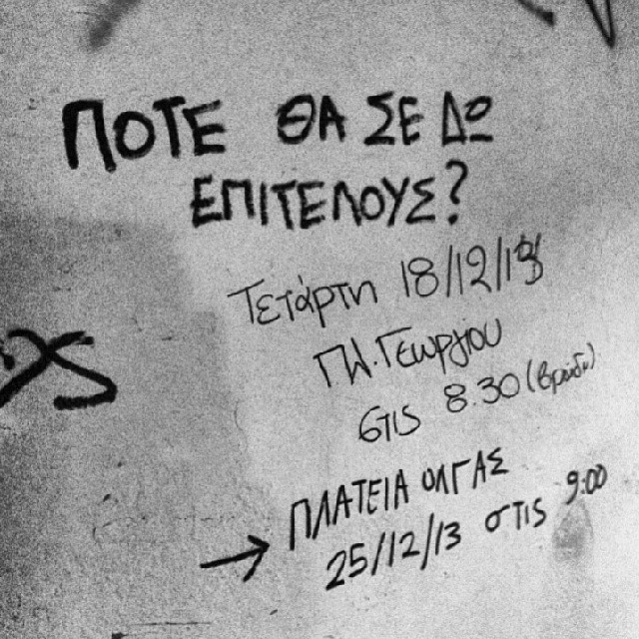 ΠΟΤΕ ΘΑ ΣΕ ΔΩ
ΕΠΙΤΕΛΟΥΣ?
Τετάρτη 18/12/13
Πλ. Γεωργίου
στις 8.30 (βράδυ)
ΠΛΑΤΕΙΑ ΟΛΓΑΣ
25/12/13 στις 9:00